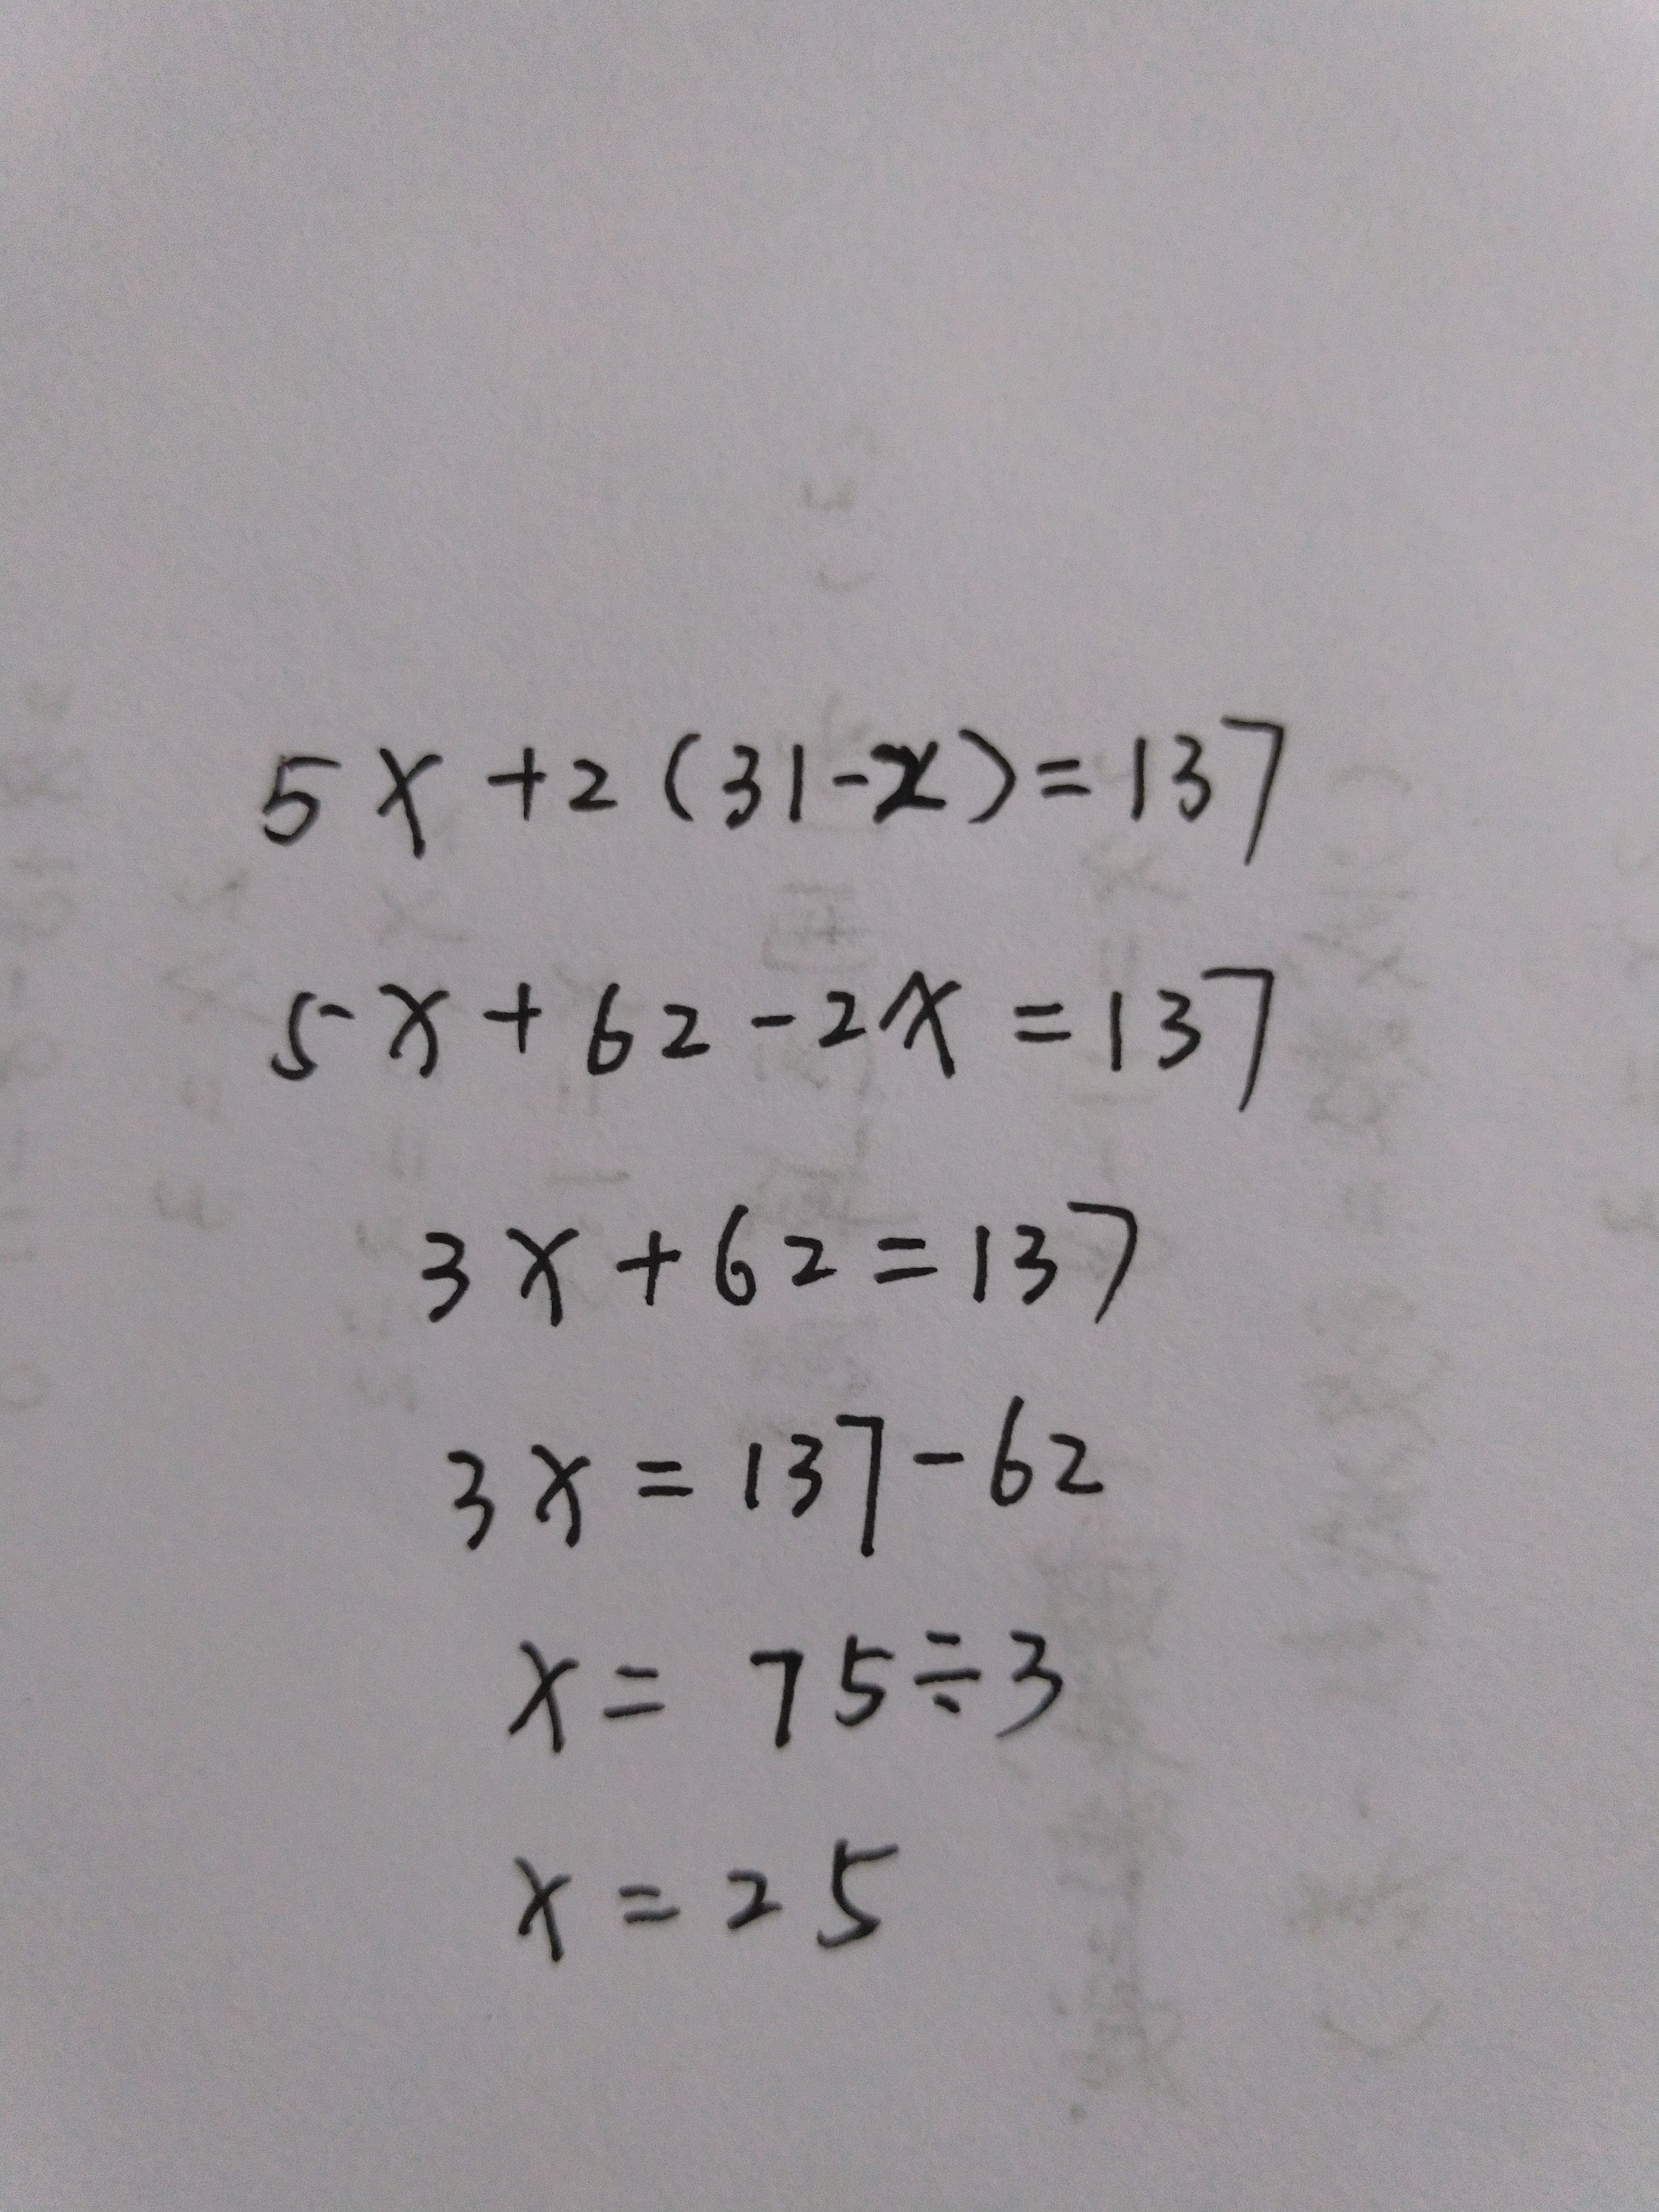 5x+2(31-x)=137
5x+62-2x=137
3x+62=137
3x=137-62
x=75÷3
x=25